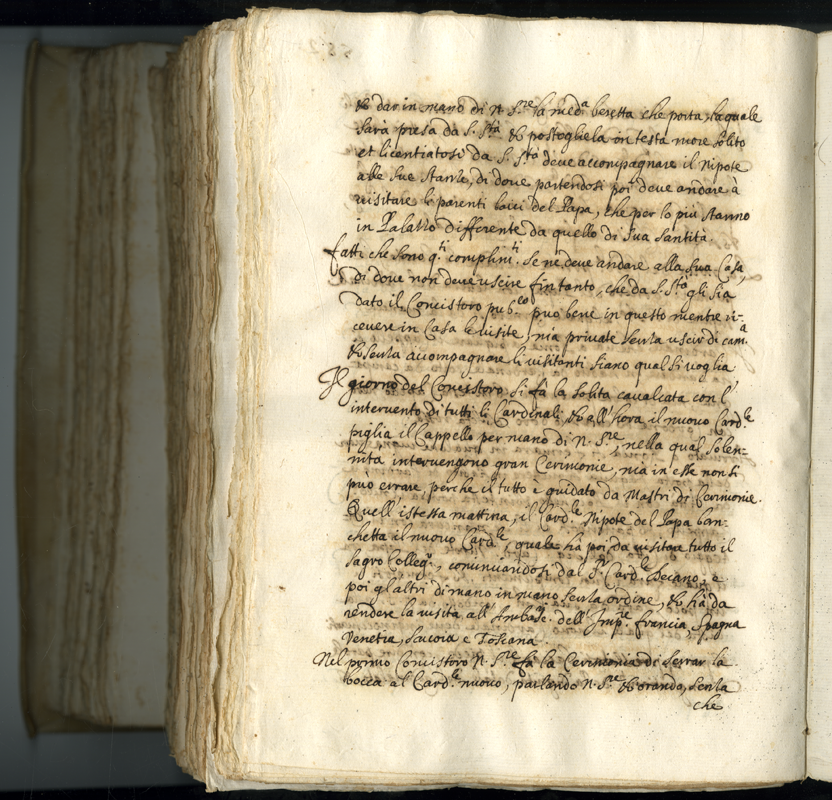 & dar in mano di N. S.re la med.a beretta che porta, la quale
sarà presa da S. S.tà & postogliela in testa more solito
et licentiatosi da S. S.tà deve accompagnare il Nipote
alle sue stanze, di dove partendosi poi deve andare à
visitare li parenti laici del Papa, che per lo più stanno
in Palazzo differente da quello di sua Santità.
fatti che sono q.ti complim.ti se ne deve andare alla sua Casa,
di dove non deve uscire fin tanto, che da S. S.tà gli sia
dato il Concistoro pub.co può bene in questo mentre ri-
cevere in Casa le visite, mà private senza uscir di cam.a
& senza accompagnare li visitanti siano qual si voglia
Il giorno del Concistoro si fà la solita cavalcata con l'
intervento di tutti li Cardinali, & all'hora il nuovo Card.le
piglia il Cappello per mano di N. S.re, nella qual solen-
nità intervengono gran Cerimonie, mà in esse non si
può errare, perche il tutto è guidato da Mastri di Cerimonie.
Quell'istessa mattina, il Card.le Nipote del Papa ban-
chetta il nuovo Card.le, quale hà poi da visitar tutto il
sagro Colleg.o, cominciandosi dal S.r Card.le Decano, e
poi gl'altri di mano in mano senza ordine, & hà da
rendere la visita all' Ambasc. dell' Imp.re francia, Spagna
Venetia, Savoia e Toscana.
Nel primo Concistoro N. S.re fà la Cerimonia di serrar la
bocca al Card.le nuovo, parlando N. S.re & orando, senza
che